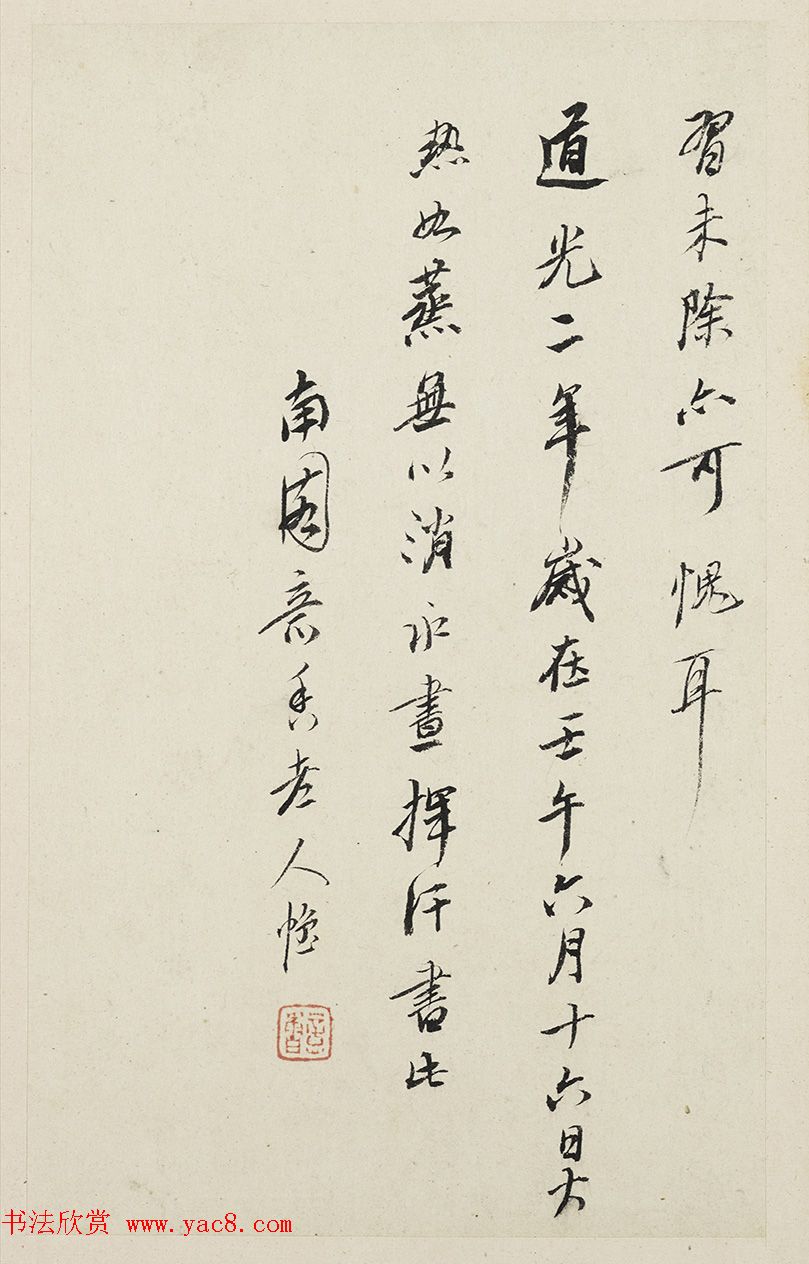 習未除亦可愧耳
道光二年歲在壬午六月十六日大
熱如蒸無以消永晝揮汗書此
南園意香老人
书法欣赏 www.yac8.com